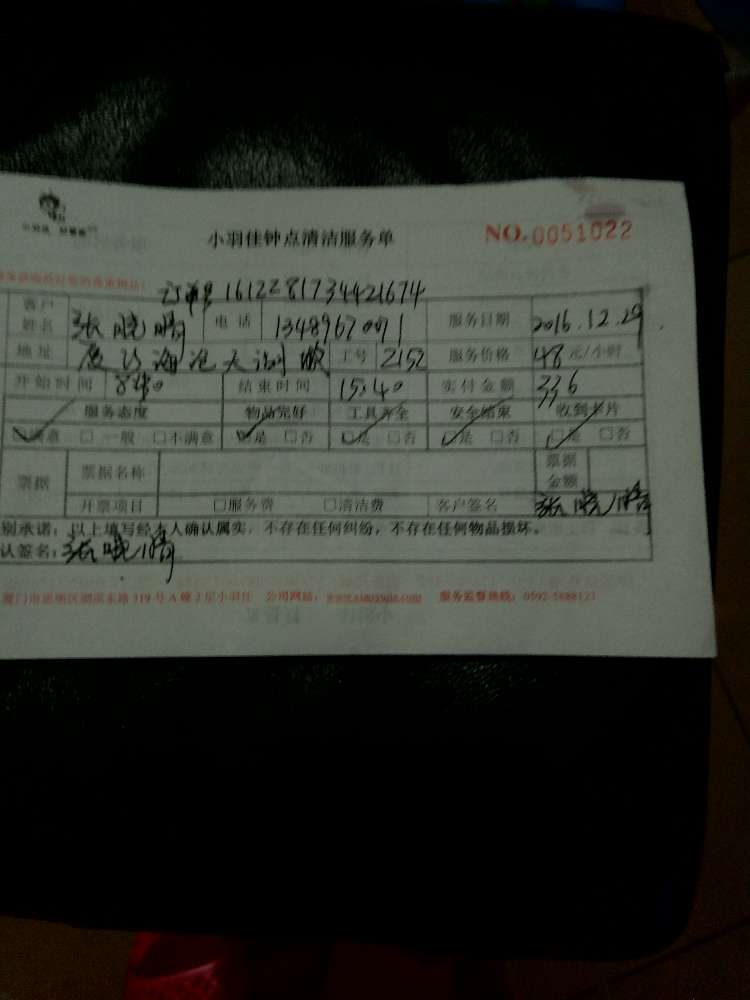 小羽佳钟点清洁服务单 NO.0051022
订单号 1612281734421674
客户姓名 张晓晴 电话 13489670091 服务日期 2016.12.29
地址 厦门海沧天湖 工号 2152 服务价格 48元/小时
开始时间 8:40 结束时间 15:40 实付金额 336
服务态度 物品完好 工具齐全 安全结束 收到卡片
☑满意 □一般 □不满意 ☑是 □否 ☑是 □否 ☑是 □否 ☑是 □否
票据 票据名称 票据金额
开票项目 □服务费 □清洁费 客户签名 张晓晴
别承诺：以上填写经本人确认属实，不存在任何纠纷，不存在任何物品损坏。
认签名：张晓晴
厦门市思明区湖滨东路319号A幢2层小羽佳 公司网站： 服务监督热线：0592-5688123